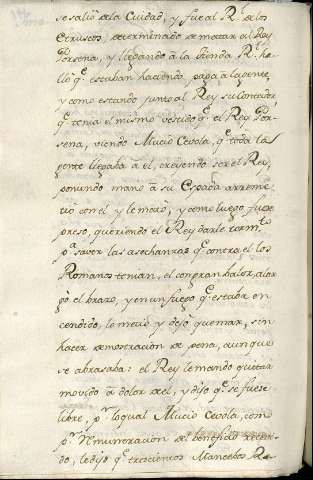 se salió de la Cuidad, y fue al R.l de los
Etruscos, determinado de matar al Rey
Porsena, y llegando à la tienda R.l ha-
llo q.e estaban haciendo paga à la gente,
y como estando junto al Rey su Contador
q.e tenia el mismo vestido q.e el Rey Por-
sena, viendo Mucio Cevola, q.e toda la
gente llegaba à el, creyendo ser el Rey,
poniendo mano à su Espada arreme-
tió con el y le mató, y como luego fuese
preso, queriendo el Rey darle torm.to
p.a saver las asechanzas q.e contra el los
Romanos tenian, el con gran balor, alar
gò el brazo, y en un fuego q.e estaba en
cendido, lo metió y dejò quemar, sin
hacer demostracion de pena, aunque
se abrasaba: el Rey le mandò quitar
movido à dolor de el, y dijo q.e se fuese
libre, p.r lo qual Mucio Cevola, como
p.r Remuneracion del beneficio recevi-
do, le dijo q.e trescientos Mancebos Ro-